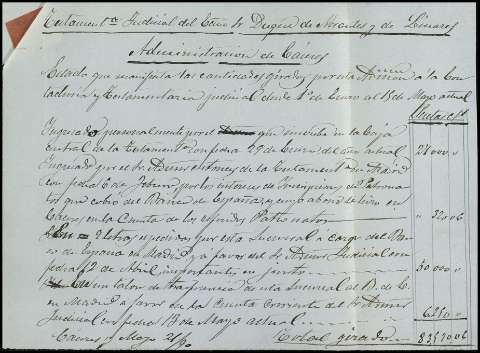 Testament.ª Judicial del Excmo Sr Duque de Arcos y de Linares
Administracion de Caceres
Estado que manifiesta las cantidades giradas por esta Admon á la Con
taduria y Testamentaria judicial desde 1º de Enero al 15 de Mayo actual
Ptas Cts
Ingresado personalmente por el que suscribe en la Caja
central de la Testament con fecha 29 de Enero del año actual 24000 "
Ingresado por el Sr Admor de la Testament en Madrid
con fecha 6 de Febrero, por los intereses de Patrona
tos que cobró del Banco de España, y cuyo abono se hizo en
Caceres en la Cuenta de los referidos Patronatos " 320 06
2 letras expedidas por esta Sucursal a cargo del Ban
co de España en Madrid a favor del Sr Admor Judicial con
fecha 12 de Abril importantes en junto 50 000 "
un talon de trasferencia de esta Sucursal al B. de E.
en Madrid a favor de la Cuenta corriente del Sr Admor
Judicial con fecha 13 de Mayo actual 6250 "
Total girado 83570 06
Caceres Mayo